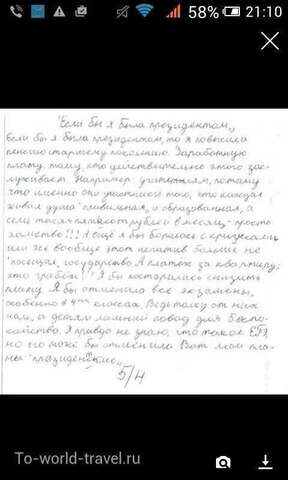 58% 21:10
"Если бы я была президентом"
Если бы я была президентом, то я повысила
пенсию старшему поколению. Заработную
плату, тому кто действительно этого зас-
луживает. Например: учителям, потому
что именно они участники того, что каждая
живая душа правильная, и образованная, а
сем тысяч рублей в месяц - просто
хамство!!! Я ещё бы боролась с кризисом,
или же вообще этот негатив больше не
посещал государство. А платёж за квартиру:
это грабёж!!! Я бы постаралась снизить
плату. Я бы отменила все экзамены,
особенно в 4ых классах. Ведь толку от них
мало, а детям лишний повод для беспо-
койства. Я правда не знаю, что такое ЕГЭ,
но его тоже бы отменила. Вот мои пла-
ны
5/4
To-world-travel.ru